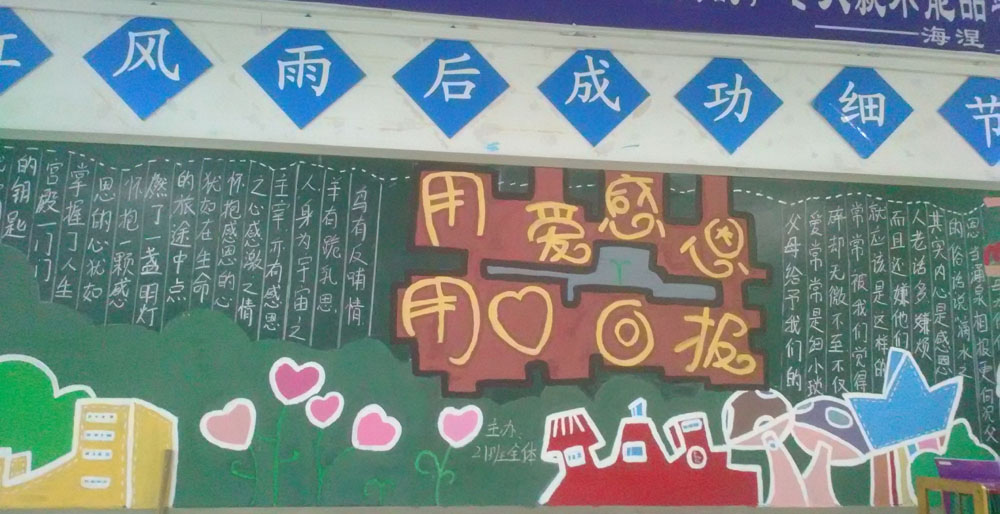 就不能品
——海涅
风雨后成功细节
用爱感恩
用心回报
乌有反哺情,
羊有跪乳恩.
人身为宇宙之
主宰亦有感恩
之心感激之情
怀抱感恩的心
犹如在生命
的旅途中点
燃了一盏明灯
怀抱一颗感
恩的心犹如
掌握了人生
宫殿一门门
的钥匙
父母给予我们的
爱常常是细小琐
屑却无微不至不仅
常常被我们觉得
就应该是这样的
而且还嫌他们
人老话多嫌烦
其实内心是感恩
的俗话说滴水之
恩当涌泉相报更何况父
主办:
218班全体